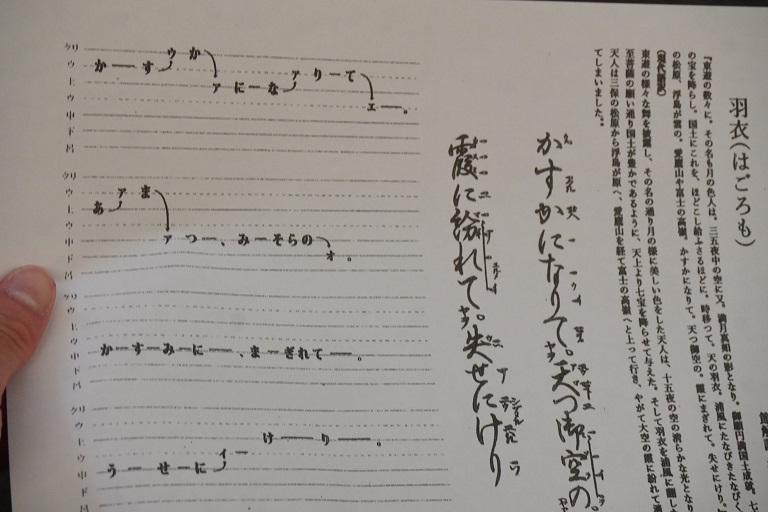 羽衣(はごろも)
『東遊の数々に。その名も月の色人は。三五夜中の空に又。満月真如の影となり。御願円満国土成就。七
の宝を降らし。国土にこれを。ほどこし給ふさるほどに。時移つて。天の羽衣。浦風にたなびきたなびく。
の松原。浮島が雲の。愛鷹山や富士の高嶺。かすかになりて。天つ御空の。霞にまぎれて。失せにけり。
(現代語訳)
東遊の様々な舞を披露し、その名の通り月の様に美しい色をした天人は、十五夜の空の清らかな光となり
至菩薩の願い通り国土が豊かであるように、天上より七宝を降らせて与えた。そして羽衣を浦風に
天人は三保の松原から浮島が原へ、愛鷹山を経て富士の高嶺へと上って行き、やがて大空の霞に紛れて
てしまいました。
かすかになりて。天つ御空の。
霞に紛れて。失せにけり
クリ
ウ
上
ウ
中
下
呂
かーすゥかァにーなァりーてェー。
ウ
上
ウ
中
下
呂
あァまァつー、みーそらのォ。
クリ
ウ
上
ウ
中
下
呂
かーすーみーにー、まーぎれてー。
クリ
ウ
上
ウ
中
下
うーせーにィーけーりー。